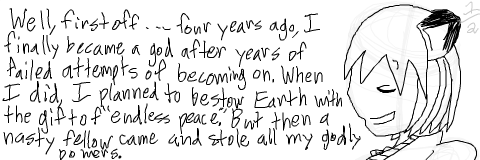 Well, first off .... four years ago, I
finally became a god after years of
failed attempts of becoming on. When
I did, I planned to bestow Earth with
the gift of "endless peace. But then a
nasty fellow came and stole all my godly
powers.
1/2